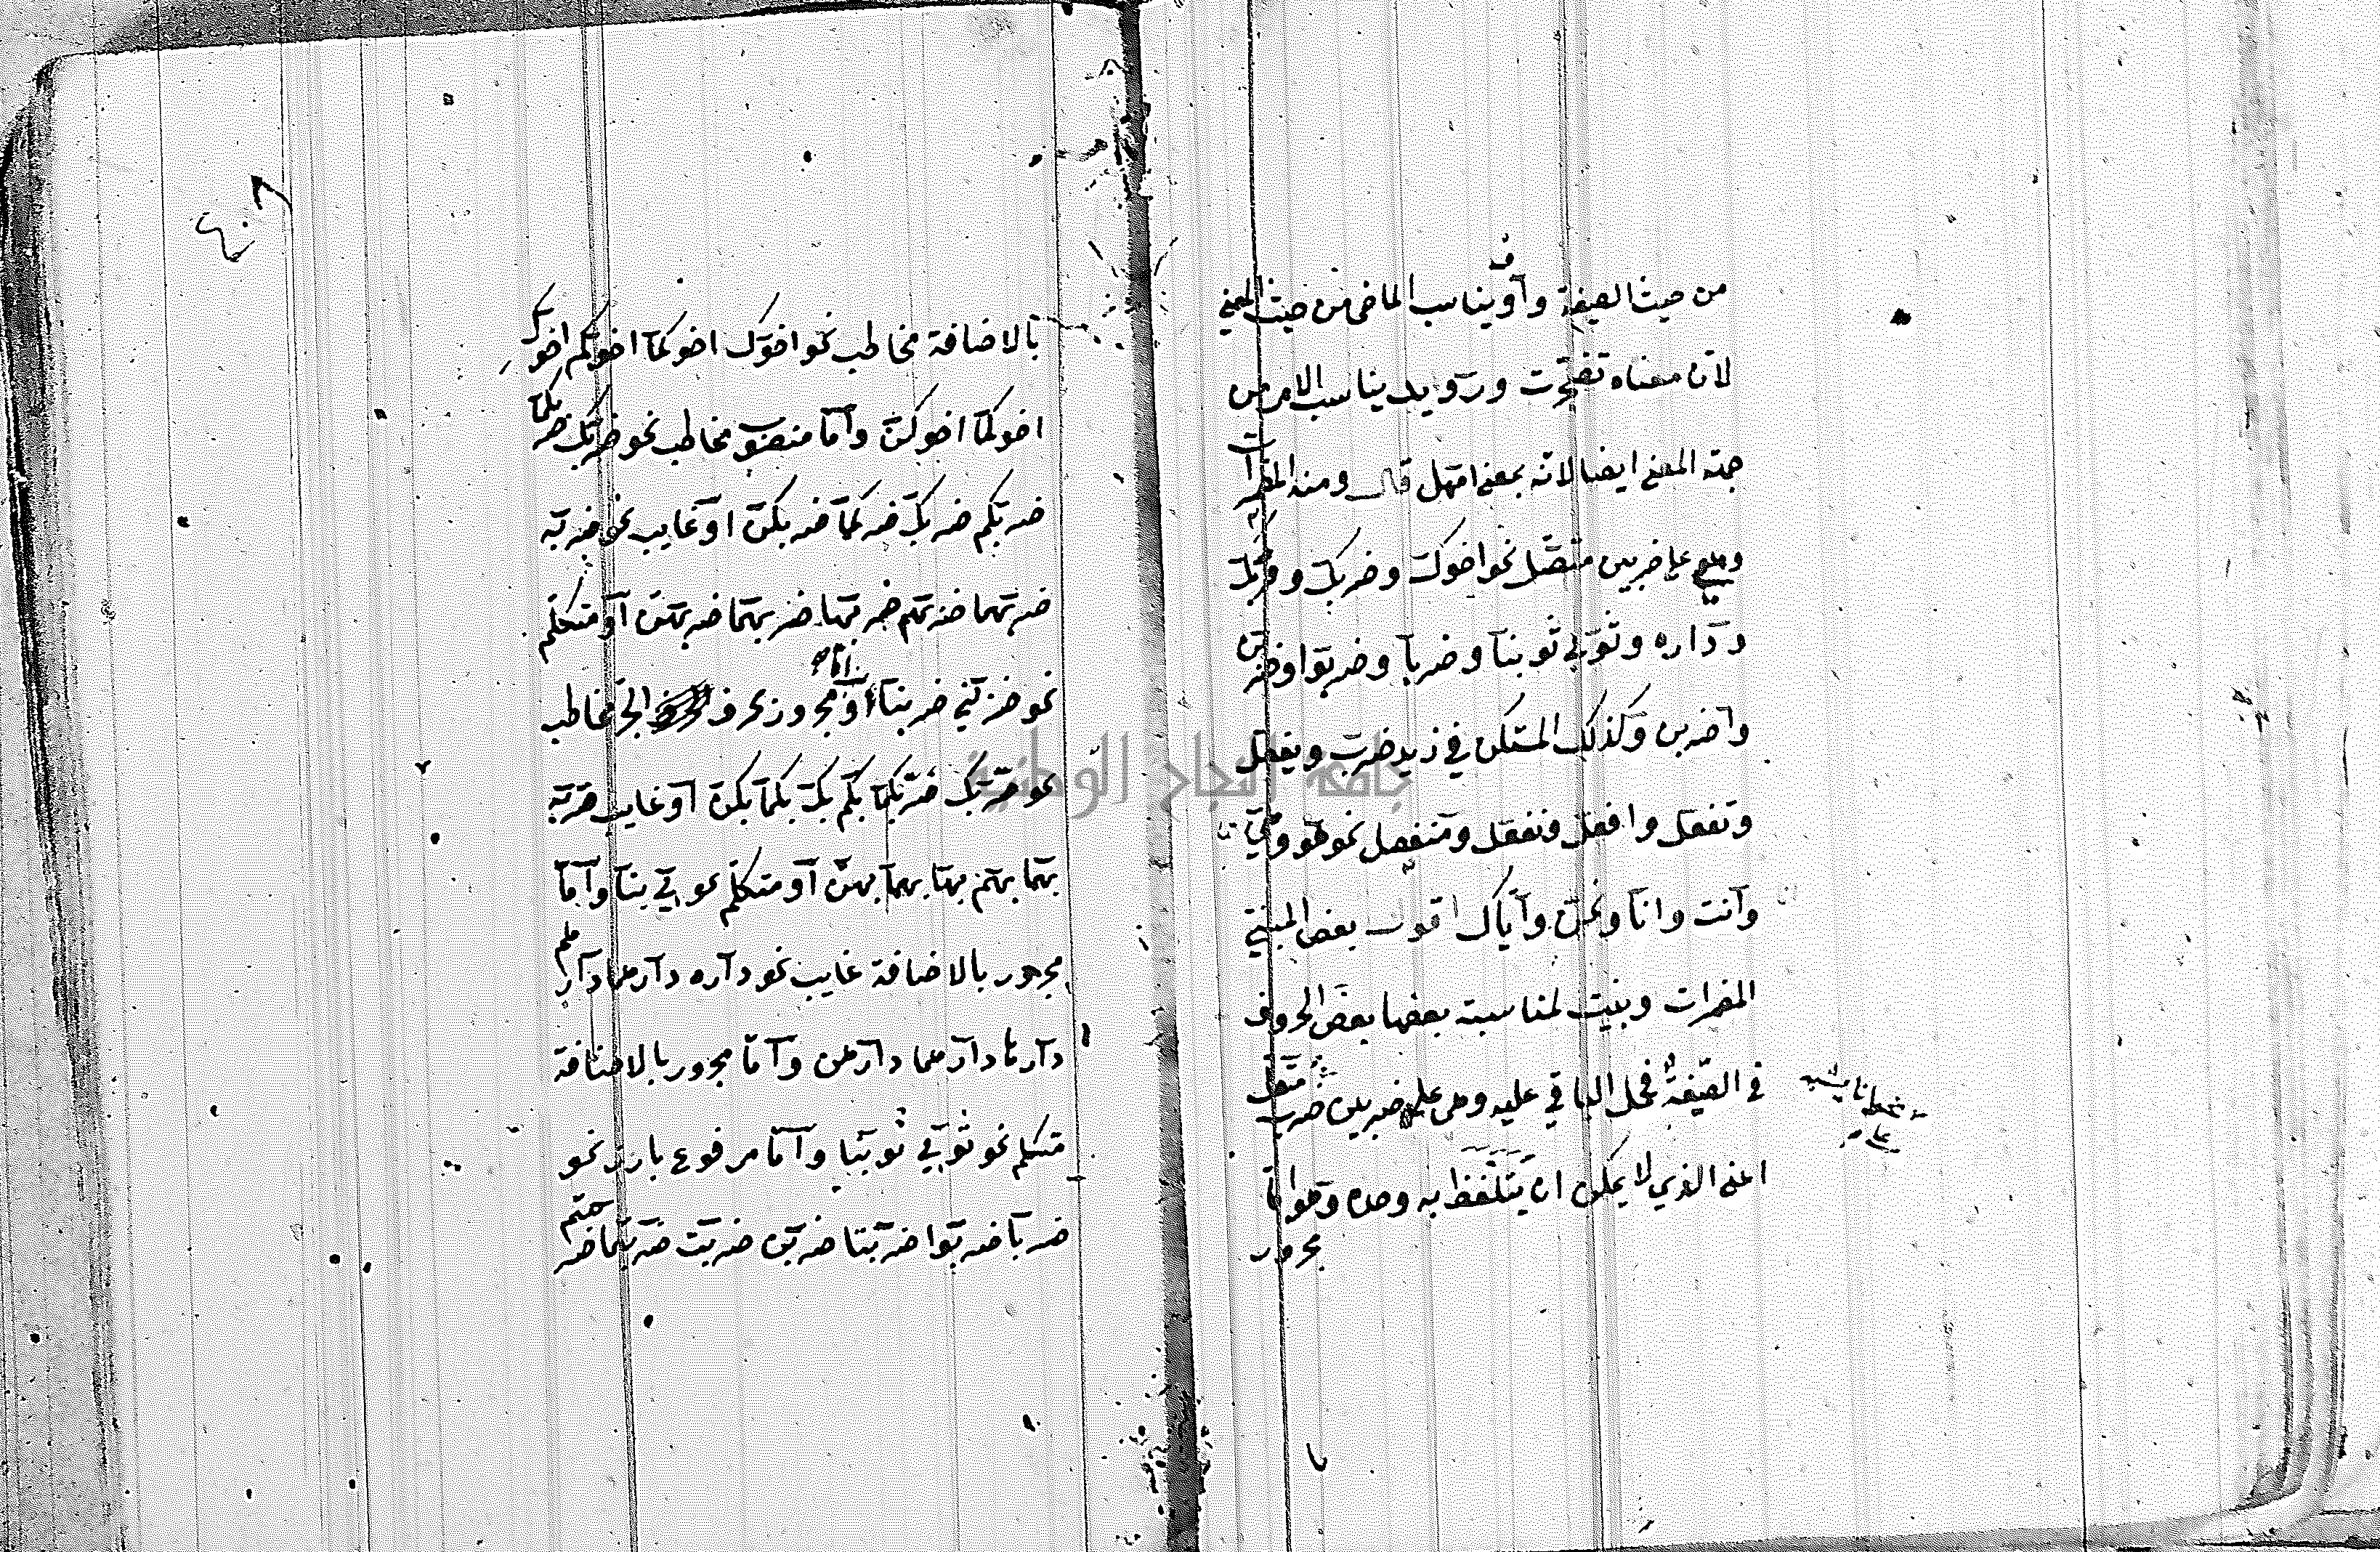 من حيث الصيغة واوف يناسب الماضى من حيث المعنى
لان معناه تضجرت ورويد يناسب الامر من
جهة المعنى ايضا لانه بمعنى امهل قال ومنه المضمرات
وهى على ضربين متصل نحو اخوك وضربك ومر بك
وداره وثوبى ثوبنا وضربا وضربوا وضربن
واضربن وكذلك المستكن في زيد ضرب ويفعل
وتفعل وافعل ونفعل ومنفصل نحو هو وهي
وانت وانا ونحن واياك اقول بعض المبنى
المضمرات وبنيت لمناسبة بعضها بعض الحروف
في الصيغة فحمل الباقي عليه وهى على ضربين ضرب متصل
اعنى الذي لا يمكن ان يتلفظ به وحده وهو اما
مجرور
٤٠٨
بالاضافة مخاطب نحو اخوك اخوكما اخوكم اخوك
اخوكما اخوكن واما منصوب مخاطب نحو ضربك ضربكما
ضربكم ضربك ضربكما ضربكن او غايب نحو ضربه
ضربهما ضربهم ضربها ضربهما ضربهن او متكلم
نحو ضربني ضربنا او اما مجرور بحرف الجر مخاطب
نحو مر بك مر بكما بكم بك بكما بكن او غايب مر به
بهما بهم بها بهما بهن او متكلم نحو بي بنا واما
مجرور بالاضافة غايب نحو داره دارهما دارهم
دارها دارهما دارهن واما مجرور بالاضافة
متكلم نحو ثوبي ثوبنا واما مرفوع بارز نحو
ضربا ضربوا ضربتا ضربن ضربت ضربتما ضربتم
جامعة النجاح الوطنية